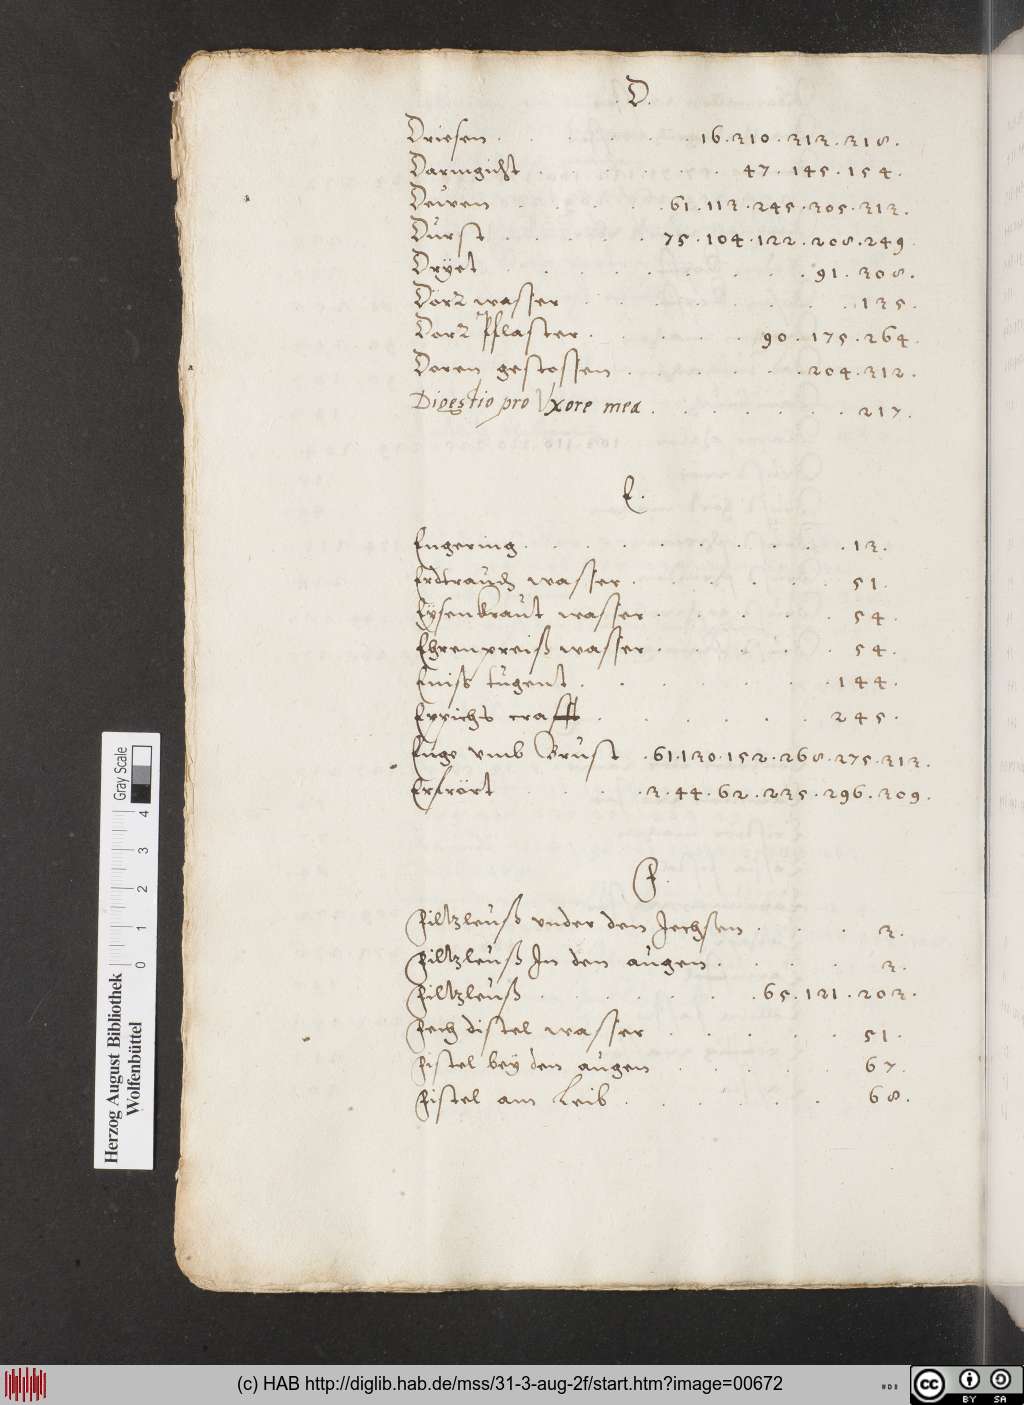 D.
Driesen . . . . . . 16. 310. 313. 318.
Darmgicht . . . . . . 47. 145. 154.
Deuwen . . . . . 61. 113. 245. 305. 313.
Durst . . . . . 75. 104. 122. 208. 249.
Dryet . . . . . . . . 91. 308.
Dörr wasser . . . . . . . . 135.
Dorr Pflaster . . . . . 90. 175. 264.
Doren gestossen . . . . . 204. 312.
Digestio pro Vxore mea . . . . . . 217.
E.
Engering . . . . . . . . . 13.
Erdtrauch wasser . . . . . . 51.
Eysenkraut wasser . . . . . . 54.
Ehrenpreiß wasser . . . . . . 54.
Eniss tugent . . . . . . . 144.
Eppichs crafft . . . . . . . 245.
Enge vmb Brust . 61. 130. 152. 268. 275. 313.
Erfrört . . . . 3. 44. 62. 235. 296. 309.
F.
Filtzleuß vnder den Iechsen . . . 3.
Filtzleuß In den augen . . . . 3.
Filtzleuß . . . . . . . 65. 121. 203.
Fech distel wasser . . . . . 51.
Fistel bey den augen . . . . . 67.
Fistel am Leib . . . . . . 68.
Herzog August Bibliothek
Wolfenbüttel
0 1 2 3 4
Gray Scale
(c) HAB http://diglib.hab.de/mss/31-3-aug-2f/start.htm?image=00672
cc BY SA